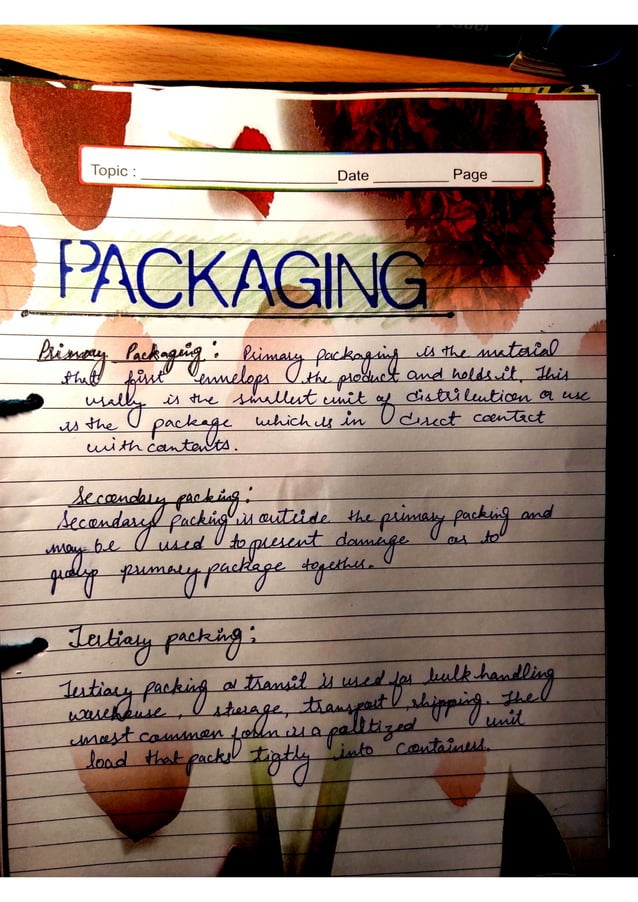 Topic : Date Page
PACKAGING
Primary Packageing : Primary packaging is the material
that first ennelops the product and holds it. This
usally is the smallest unit of distribution or use
is the package which is in direct contact
with contants.
Secondary packing :
Secondary packing is outside the primary packing and
may be used to present damage or to
group primary package together.
Tertiary packing :
Tertiary packing or transit is used for bulk handling
warehouse , storage, transport , shipping. The
most common form is a paltized unit
load that packs tigtly into containers.